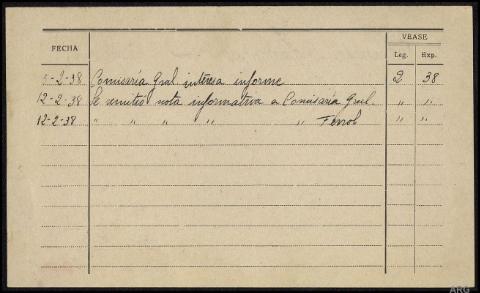 FECHA
VEASE
Leg. Exp.
5-2-38 Comisaria Gral. interesa informe 2 38
12-2-38 Se remitió nota informativa a Comisaría Gral. " "
12-2-38 " " " " " Ferrol " "
ARG